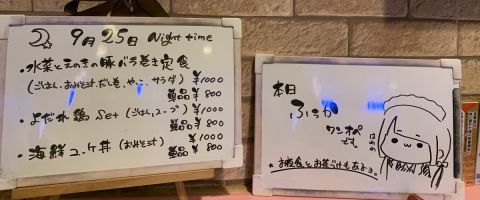 9月25日 Night time
・水菜とえのきの豚バラ巻き定食
(ごはん、おみそ汁、だし巻、やっこ、サラダ) ¥1000
単品¥800
・よだれ鶏 Set (ごはん、スープ) ¥1000
単品¥800
・海鮮ユッケ丼 (おみそ汁) ¥1000
単品¥800
本日
ふうか
ワンオペ
です。
★お夜食とお茶づけもあるよ。